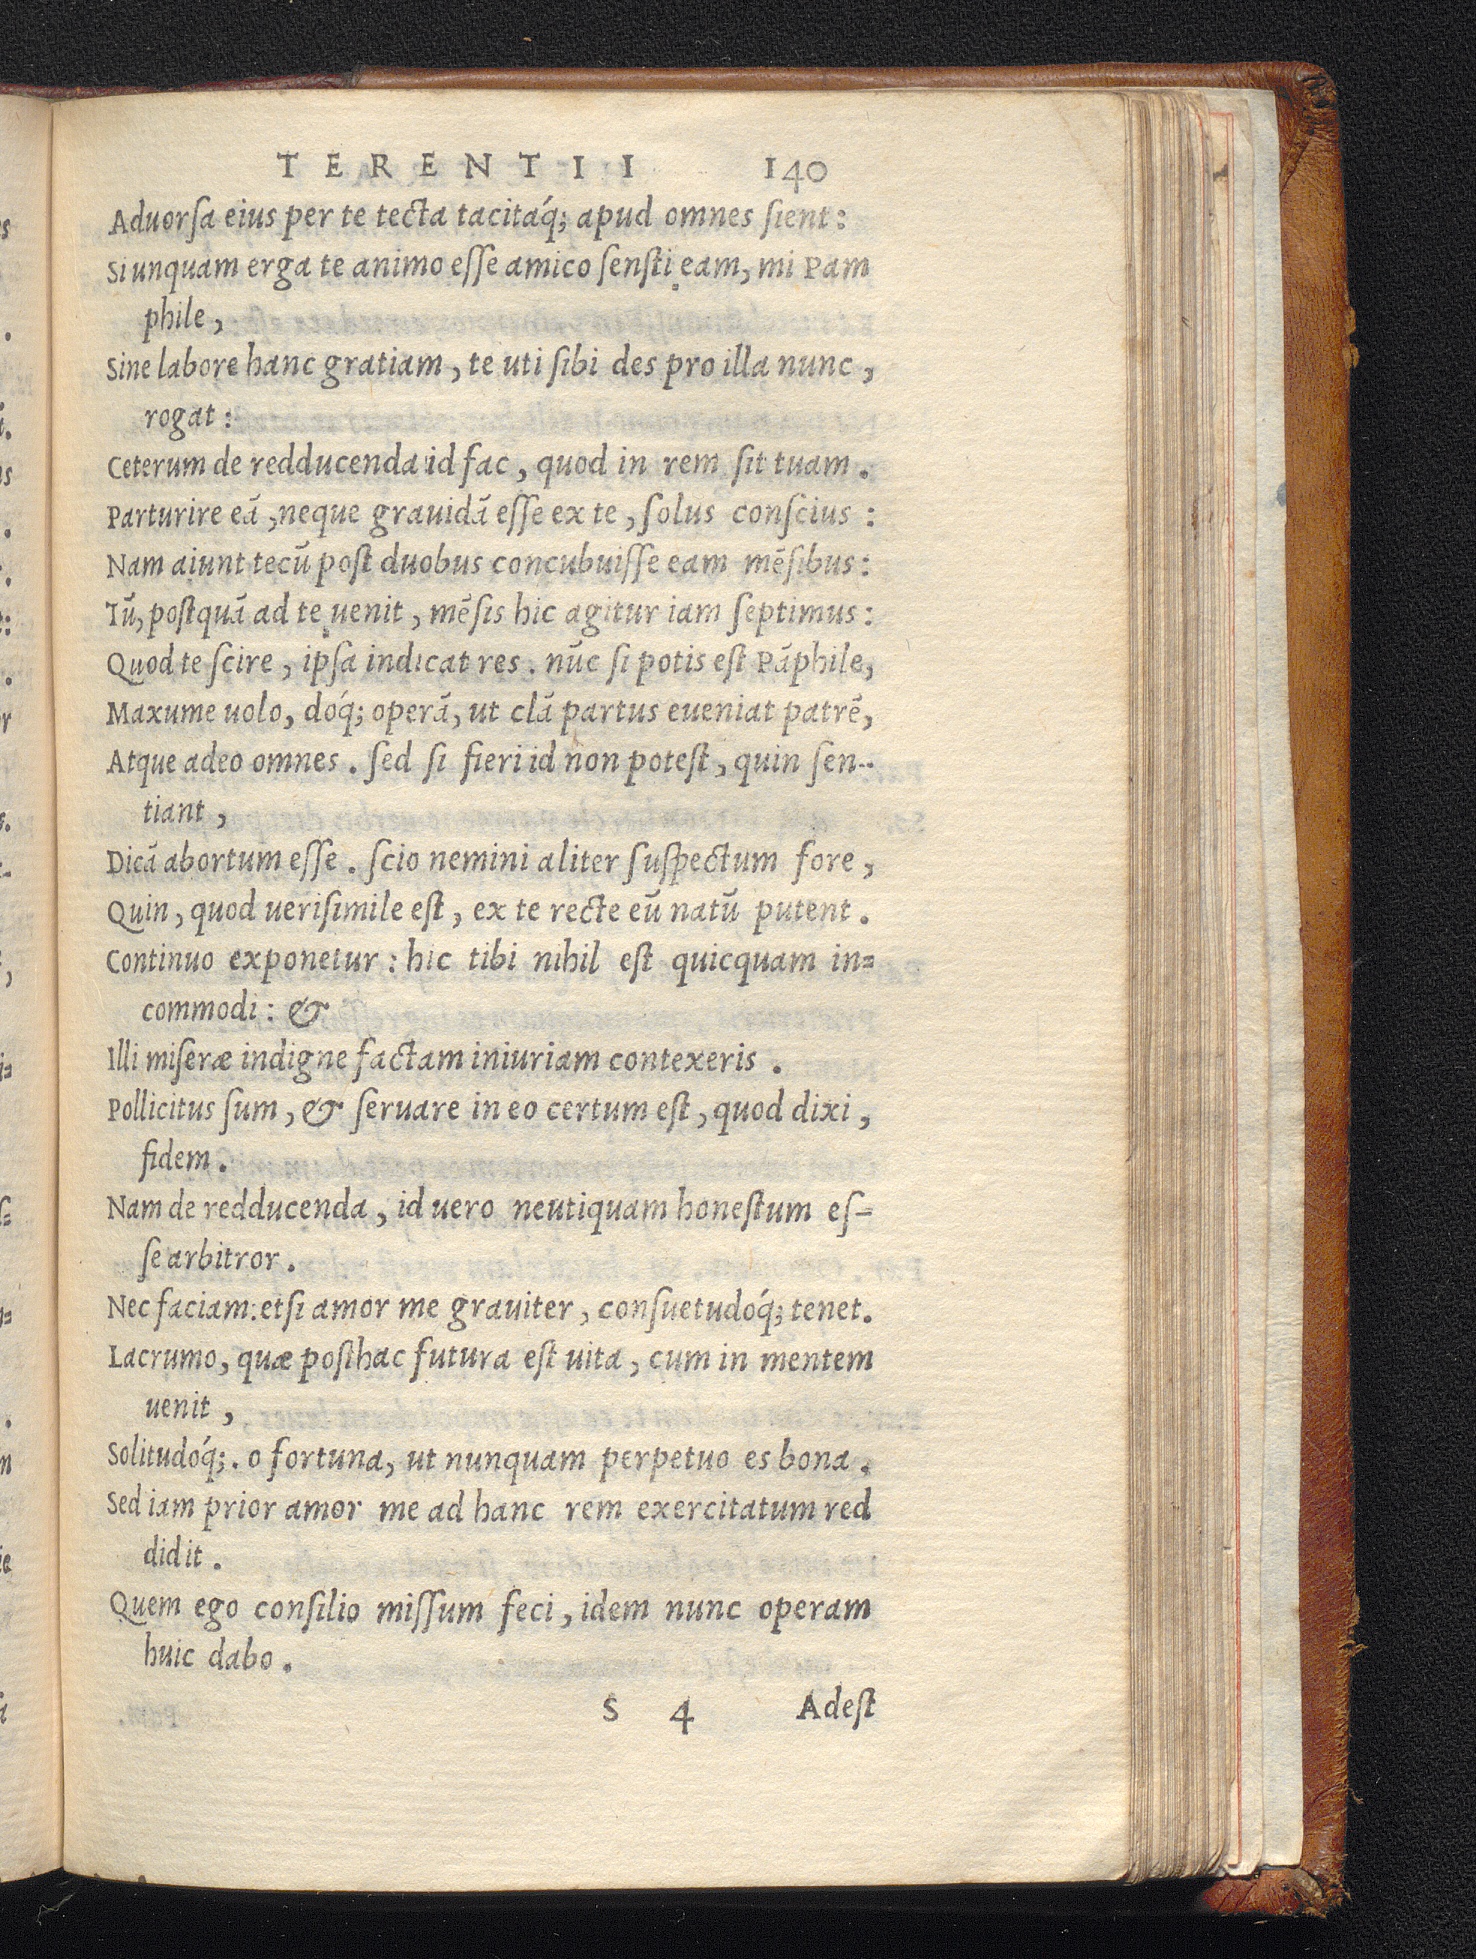 TERENTII 140
Aduorſa eius per te tecta tacitaq́; apud omnes ſient:
Si unquam erga te animo eſſe amico ſenſti eam, mi Pam
phile,
Sine labore hanc gratiam, te uti ſibi des pro illa nunc,
rogat:
Ceterum de redducenda id fac, quod in rem ſit tuam.
Parturire eā, neque grauidā eſſe ex te, ſolus conſcius:
Nam aiunt tecū poſt duobus concubuiſſe eam mēſibus:
Tū, poſtquā ad te uenit, mēſis hic agitur iam ſeptimus:
Quod te ſcire, ipſa indicat res. nūc ſi potis eſt Pāphile,
Maxume uolo, doq́; operā, ut clā partus eueniat patrē,
Atque adeo omnes. ſed ſi fieri id non poteſt, quin ſen-
tiant,
Dicā abortum eſſe. ſcio nemini aliter ſuſpectum fore,
Quin, quod ueriſimile eſt, ex te recte eū natū putent.
Continuo exponetur: hic tibi nihil eſt quicquam in=
commodi: &
Illi miſeræ indigne factam iniuriam contexeris.
Pollicitus ſum, & ſeruare in eo certum eſt, quod dixi,
fidem.
Nam de redducenda, id uero neutiquam honeſtum eſ-
ſe arbitror.
Nec faciam: etſi amor me grauiter, conſuetudoq́; tenet.
Lacrumo, quæ poſthac futura eſt uita, cum in mentem
uenit,
Solitudoq́;. o fortuna, ut nunquam perpetuo es bona.
Sed iam prior amor me ad hanc rem exercitatum red
didit.
Quem ego conſilio miſſum feci, idem nunc operam
huic dabo.
S 4 Adeſt